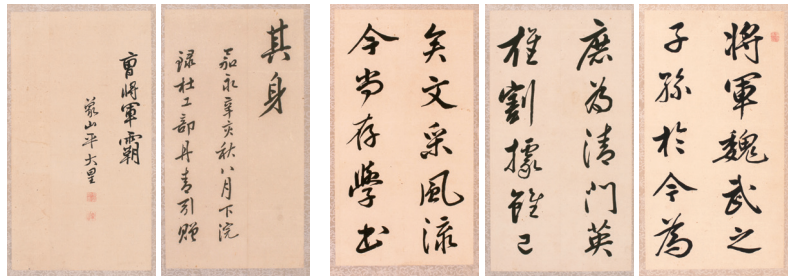 將軍魏武之
子孫於今為
庶為清門英
雄割據雖已
矣文采風流
今尚存學書
其身
嘉永辛亥秋八月下浣
録杜工部丹青引贈
曹將軍霸
山平大